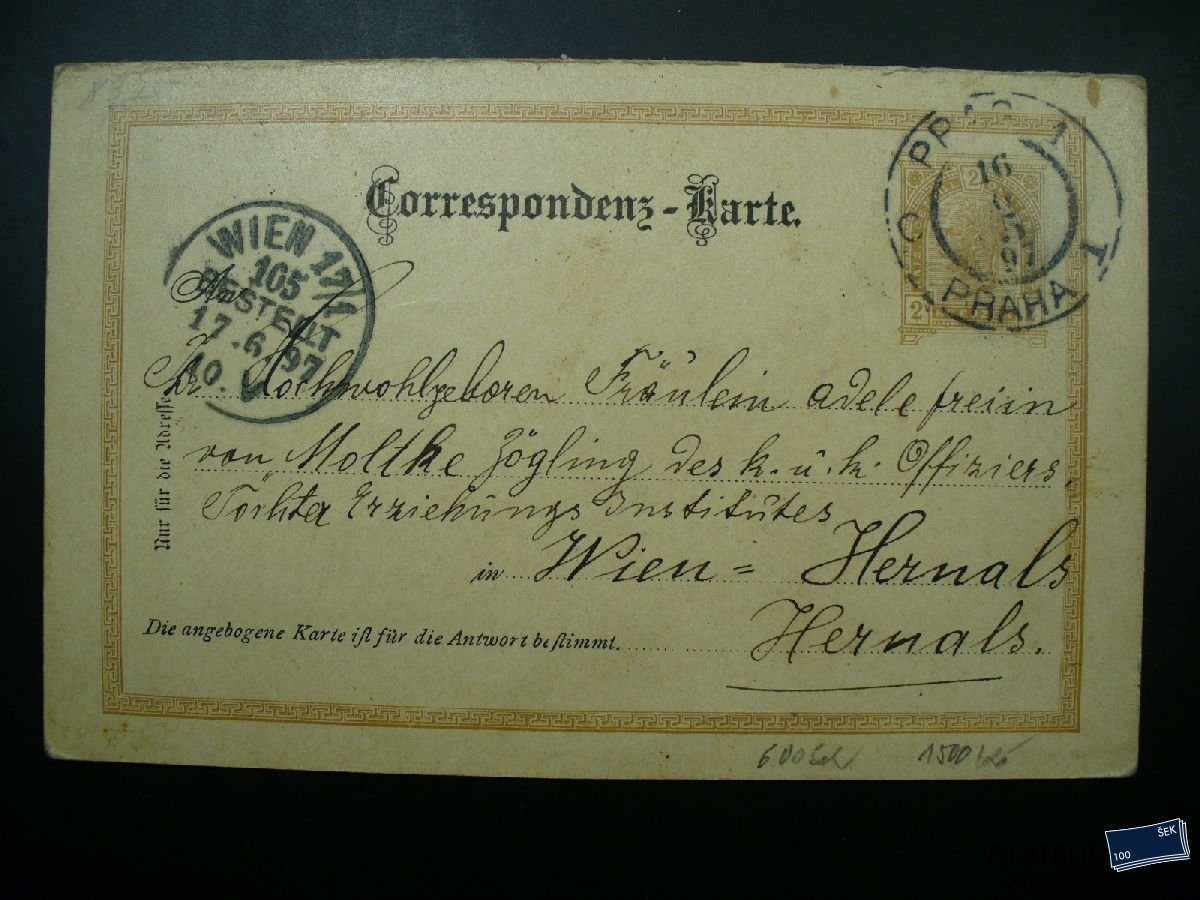 Correspondenz-Karte.
PRAG 1
16
97
PRAHA 1
2
2
WIEN 17/1
105
BESTELLT
17.6.97
10.
An
Ihr Hochwohlgeboren Fräulein Adele freiin
von Moltke Zögling des k. u. k. Offiziers,
Töchter Erziehungs Institutes
in Wien = Hernals
Hernals.
Nur für die Adresse
Die angebogene Karte ist für die Antwort bestimmt.
1500 Kč
100
ŠEK
FILATELIE